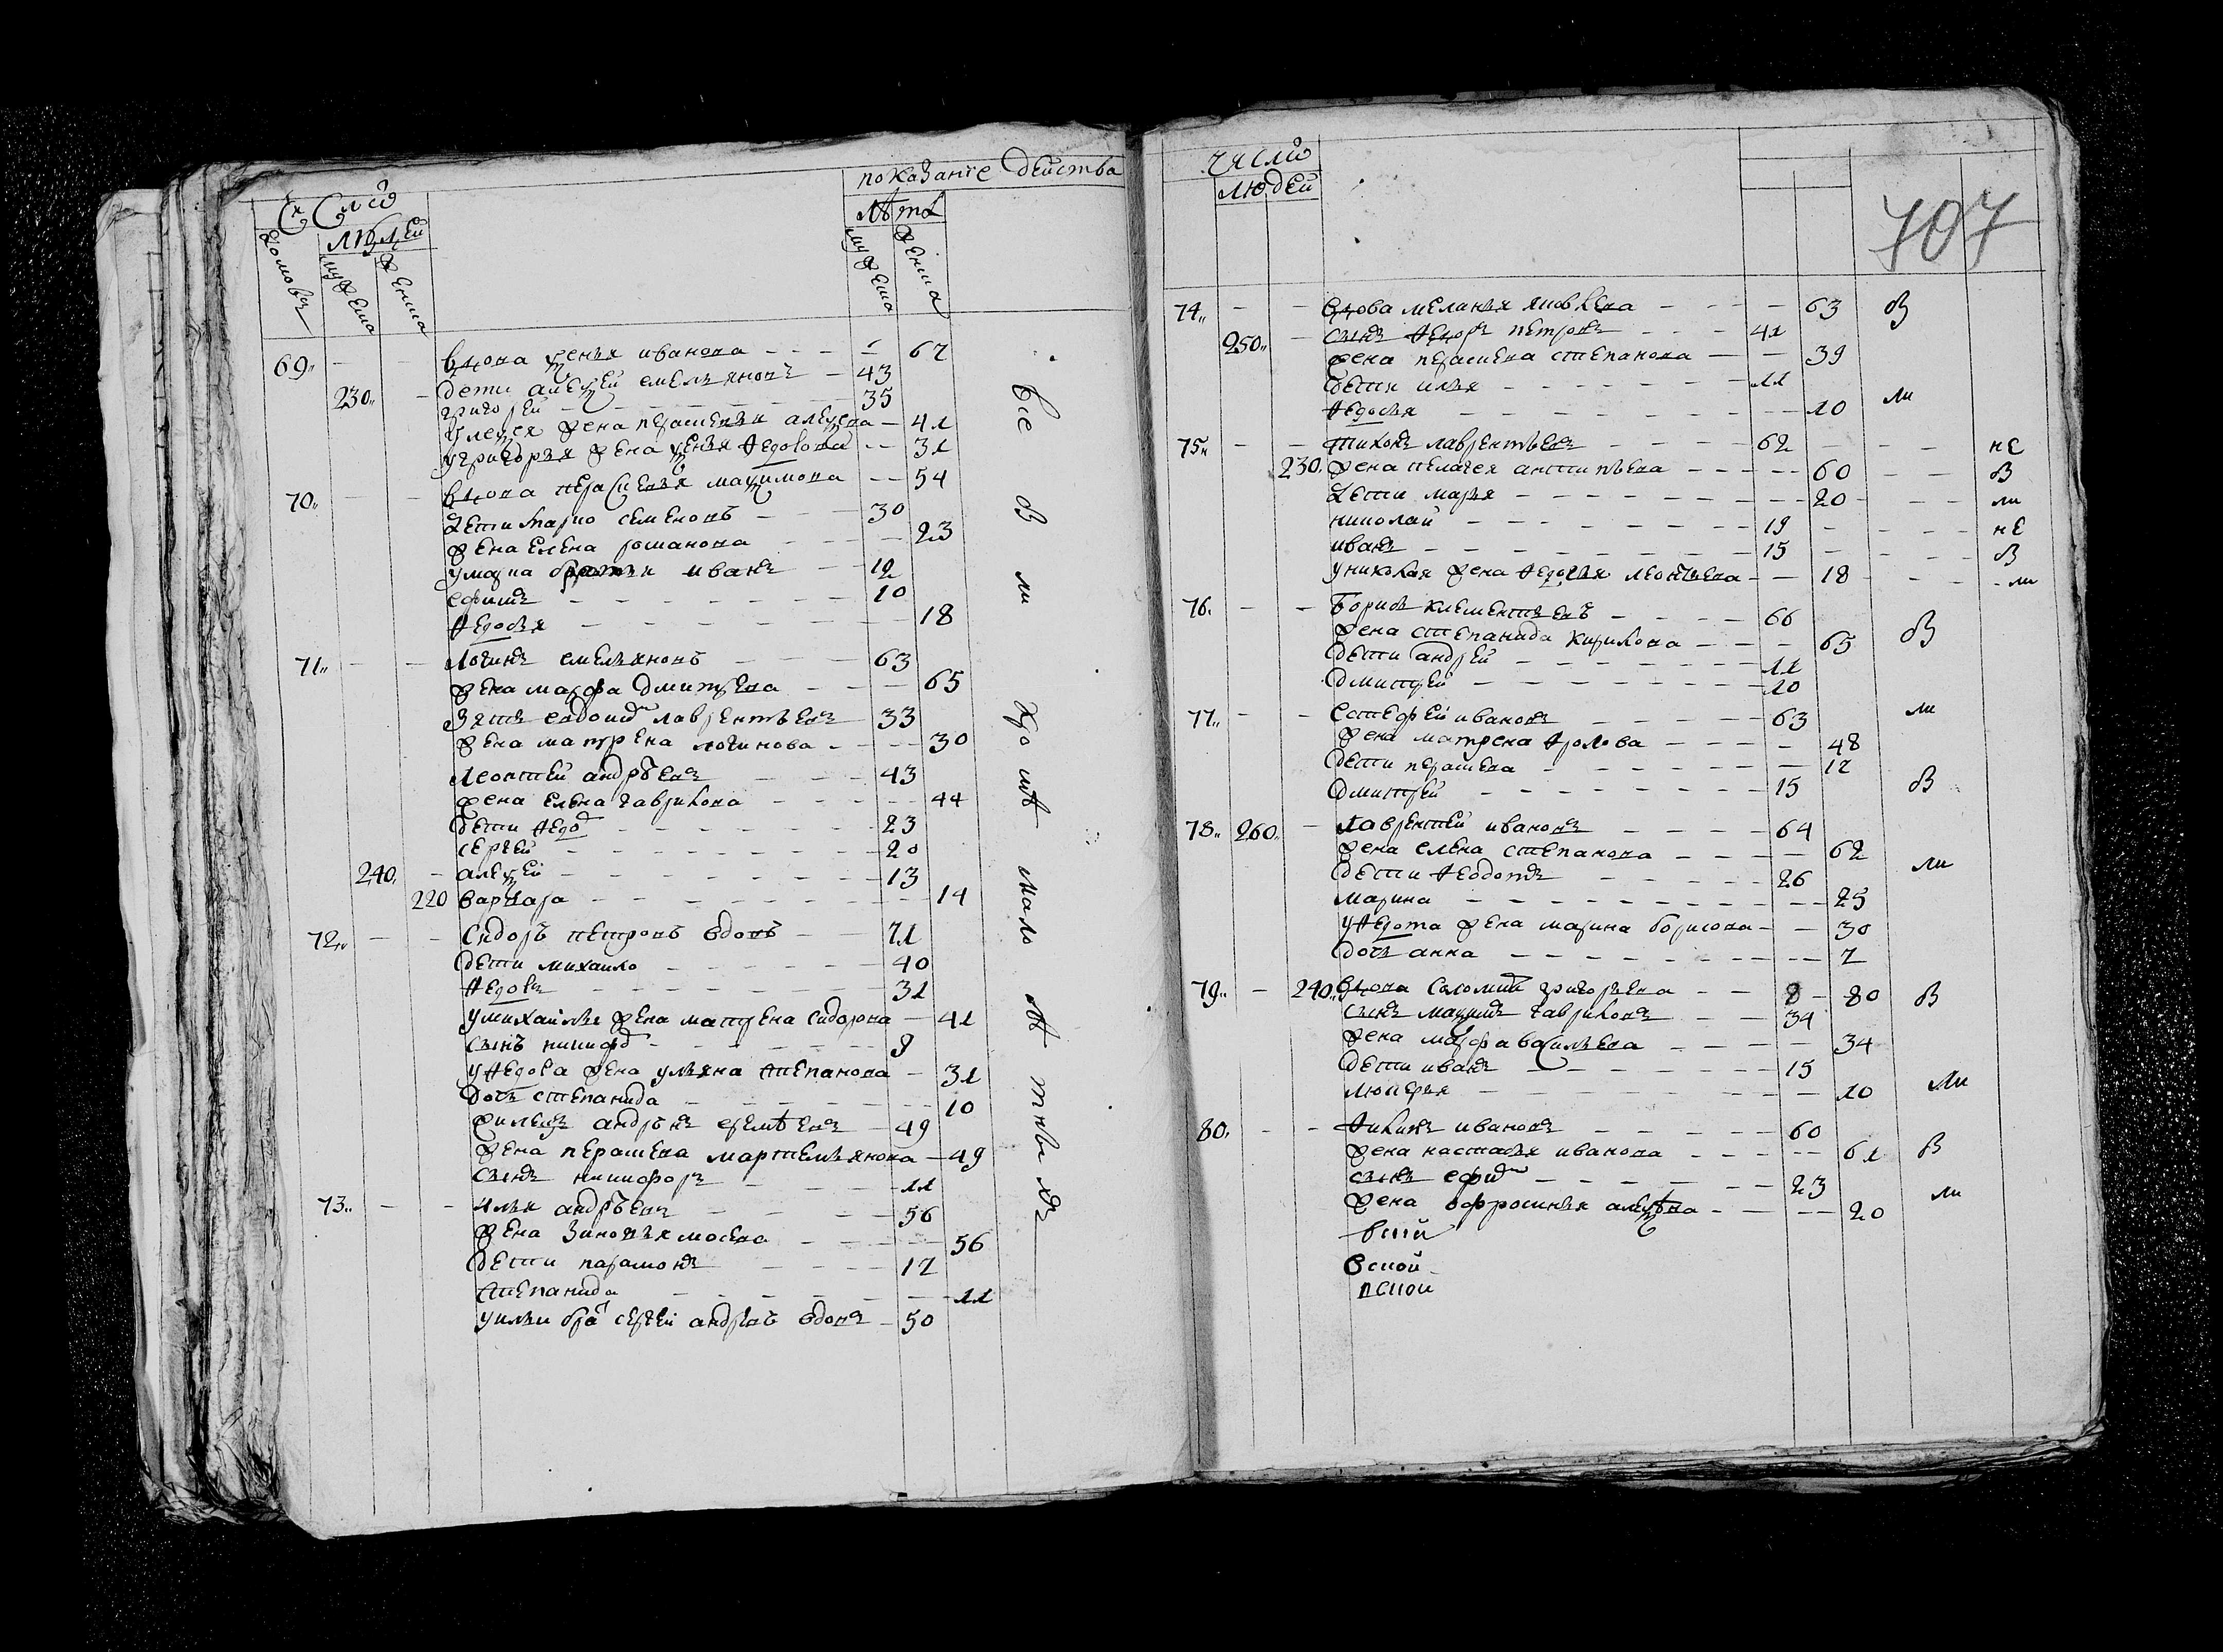 показание действа
Число
людей
лѣта
домовъ
мужеска
женска
мужеска
женска
69 вдова ксенья иванова 67
230 дети алексей емельяновъ 43
григорей 35
у алексея жена парасковья алексева 41
у григорья жена ксенья Ѳедосова 31
70 вдова парасковья максимова 54
дети марко семеновъ 30
жена елена романова 23
у марка братья иванъ 12
ефимъ 10
Ѳедосья 18
71 логинъ емельяновъ 63
жена марфа дмитрева 65
зять евдокимъ лаврентьевъ 33
жена матрена логинова 30
леонтей андрѣевъ 43
жена елена гаврилова 44
дети Ѳедоръ 23
сергей 20
240 алексей 13
220 варвара 14
72 сидоръ петровъ вдовъ 71
дети михаило 40
Ѳедосъ 31
у михайлы жена матрена сидорова 41
сынъ никифоръ 9
у Ѳедоса жена ульяна степанова 31
дочь степанида 10
филипъ андрѣевъ 49
жена парасковья мартемьянова 49
сынъ никифоръ 11
73 илья андрѣевъ 56
жена зиновья мосева 56
дети парамонъ 17
степанида 11
у ильи братъ сергей андреевъ вдовъ 50
все
В
ли
кромѣ
мало
лѣтныхъ
число
людей
707
74 вдова меланья яковлева 63 В
250 сынъ Ѳедоръ петровъ 41
жена парасковья степанова 39
дети илья 11
Ѳедосья 10 ли
75 тихонъ лаврентьевъ 62 не
230 жена пелагея антипьева 60 В
дети марья 20 ли
николай 19 не
иванъ 15 В
у николая жена Ѳедосья леонтьева 18 ли
76 борисъ клементьевъ 66
жена степанида кирилова 65 В
дети андрей 11
дмитрей 10
77 естефей ивановъ 63 ли
жена матрена Ѳролова 48
дети парасковья 12
дмитрей 15 В
78 260 лаврентей ивановъ 64
жена елена степанова 62
дети Ѳедотъ 26 ли
марина 25
у Ѳедота жена марина борисова 30
дочь анна 7
79 240 вдова соломида григорьева 80 В
сынъ максимъ гавриловъ 34
жена марфа васильева 34
дети иванъ 15
лукерья 10 ли
80 Ѳилипъ ивановъ 60
жена настасья иванова 61 В
сынъ ефимъ 23
жена офросинья алексѣева 20 ли